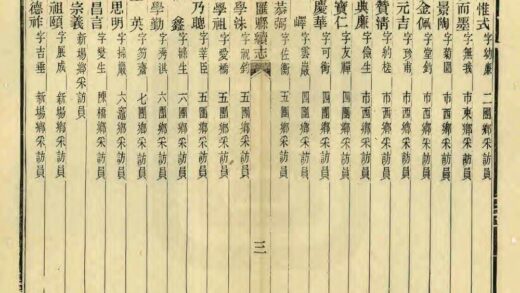 惟式字幼廉 二團鄉采訪員
而墨字無我 市東鄉采訪員
景陶字菊圃 市西鄉采訪員
金佩字堂釗 市西鄉采訪員
元吉字 市西鄉采訪員
贊清字 市西鄉采訪員
典廉字儉生 市西鄉采訪員
寶仁字友樨 四團鄉采訪員
慶華字可衡 四團鄉采訪員
嶧字雲巖 四團鄉采訪員
恭弼字佐衡 五團鄉采訪員
匯縣續志 三
學洙字 五團鄉采訪員
學祖字愛橋 五團鄉采訪員
乃聰字莘臣 五團鄉采訪員
鑫字 生 六團鄉采訪員
學勤字秀淇 六團鄉采訪員
英字芴齋 七團鄉采訪員
思明字 嚴 六竈鄉采訪員
昌言字燮生 陳橋鄉采訪員
宗義 新場鄉采訪員
祖頤字展成 新場鄉采訪員
德祚字吉垂 新場鄉采訪員